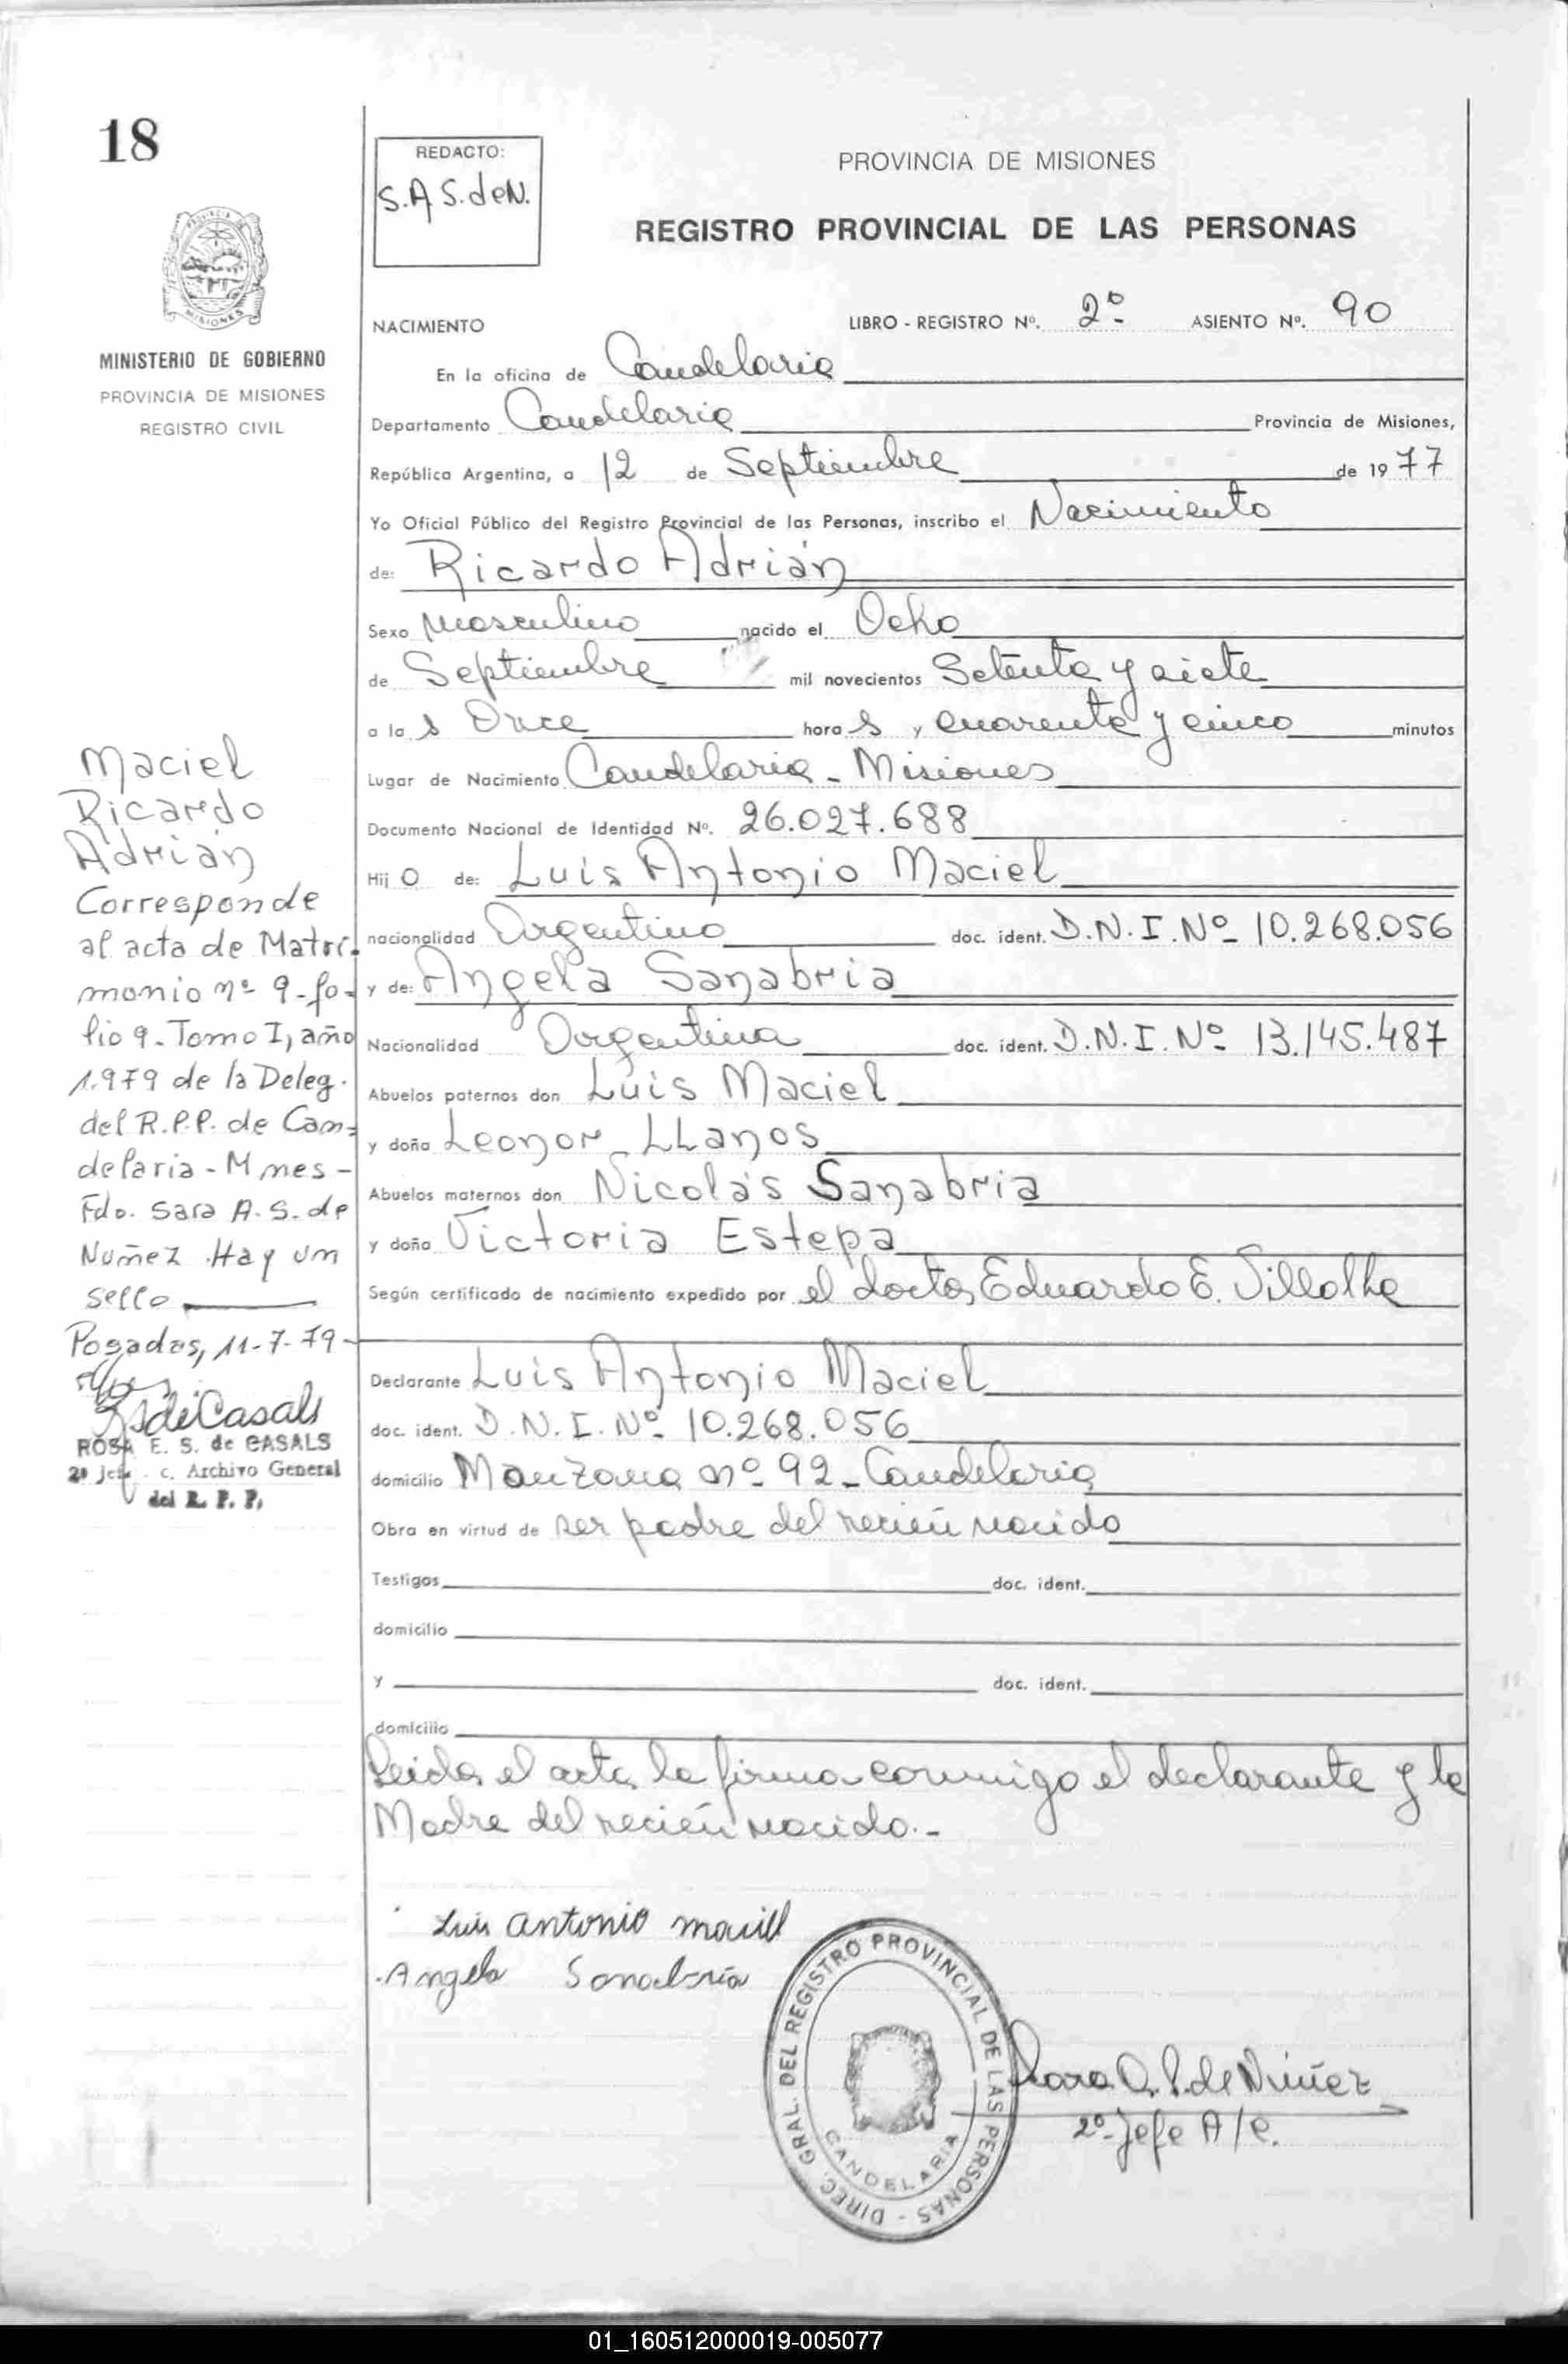 18
REDACTO:
S.A.S. de N.
PROVINCIA DE MISIONES
REGISTRO PROVINCIAL DE LAS PERSONAS
MISIONES
MINISTERIO DE GOBIERNO
PROVINCIA DE MISIONES
REGISTRO CIVIL
NACIMIENTO LIBRO - REGISTRO Nº. 2º ASIENTO Nº. 90
En la oficina de Candelaria
Departamento Candelaria Provincia de Misiones,
República Argentina, a 12 de Septiembre de 1977
Yo Oficial Público del Registro Provincial de las Personas, inscribo el Nacimiento
de: Ricardo Adrián
Sexo Masculino nacido el Ocho
de Septiembre mil novecientos Setenta y siete
a las Once horas y cuarenta y cinco minutos
Lugar de Nacimiento Candelaria - Misiones
Documento Nacional de Identidad Nº. 26.027.688
Hijo de: Luis Antonio Maciel
nacionalidad Argentino doc. ident. D.N.I. Nº 10.268.056
y de: Angela Sanabria
Nacionalidad Argentina doc. ident. D.N.I. Nº 13.145.487
Abuelos paternos don Luis Maciel
y doña Leonor LLanos
Abuelos maternos don Nicolás Sanabria
y doña Victoria Estepa
Según certificado de nacimiento expedido por el doctor Eduardo E. Villalba
Declarante Luis Antonio Maciel
doc. ident. D.N.I. Nº 10.268.056
domicilio Manzana nº 92 - Candelaria
Obra en virtud de ser padre del recién nacido
Testigos doc. ident.
domicilio
y doc. ident.
domicilio
Leida el acta, la firma conmigo el declarante y la
Madre del recién nacido.-
Luis antonio maciel
Angela Sanabria
DIREC. GRAL. DEL REGISTRO PROVINCIAL DE LAS PERSONAS -
CANDELARIA
Sara A. S. de Núñez
2º Jefe A/C.
Maciel
Ricardo
Adrián
Corresponde
al acta de Matri-
monio nº 9 - fo-
lio 9 - Tomo I, año
1.979 de la Deleg.
del R.P.P. de Can-
delaria - Mnes -
Fdo. Sara A. S. de
Nuñez. Hay un
sello
Posadas, 11-7-79
ROSA E. S. de CASALS
2º Jefe c. Archivo General
del R. P. P.
01_160512000019-005077